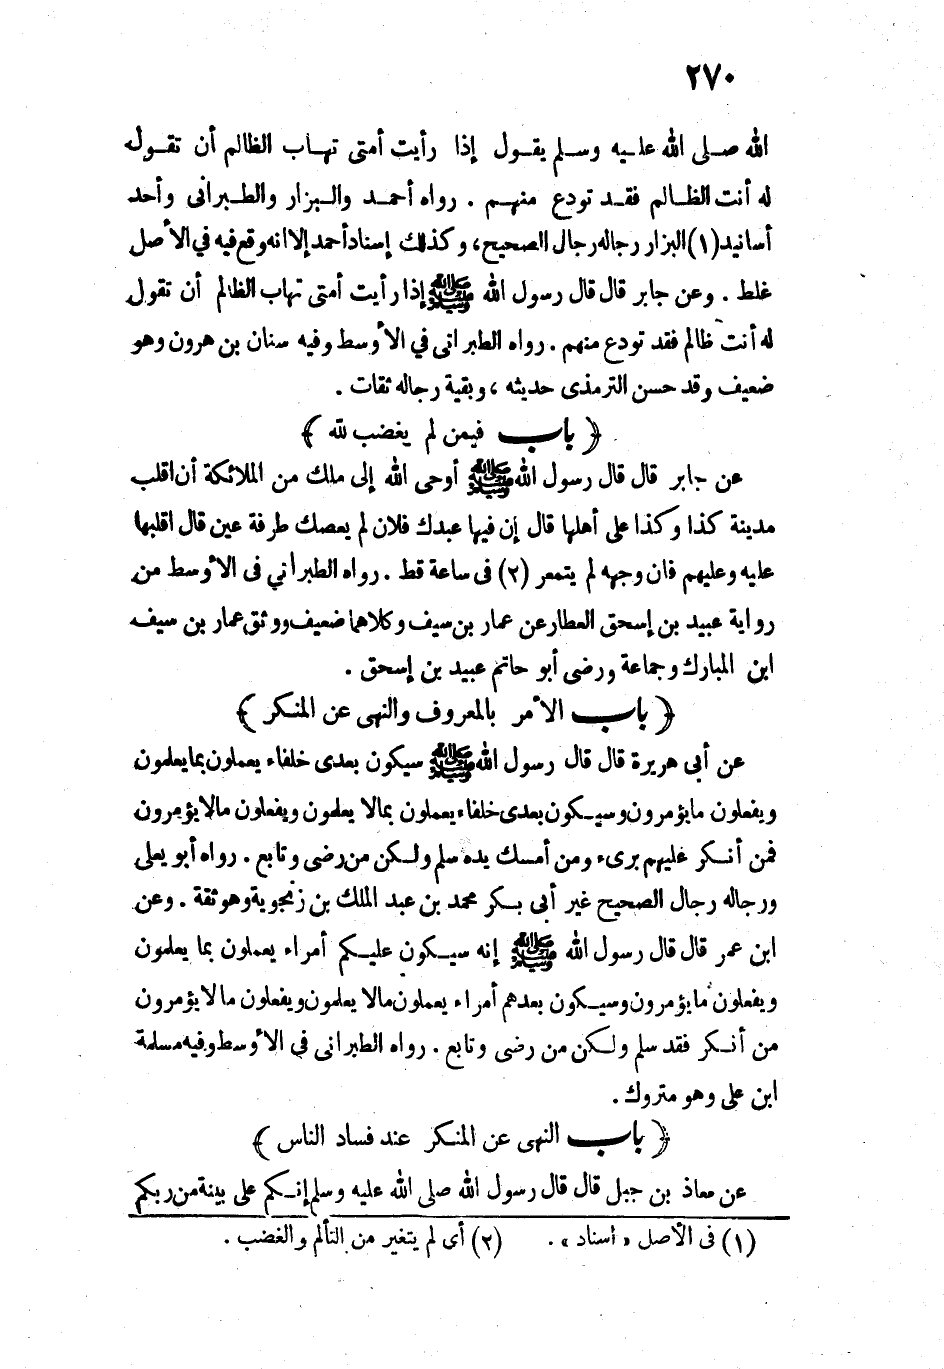 ٢٧٠
الله صلى الله عليه وسلم يقول إذا رأيت أمتى تهاب الظالم أن تقوله
له أنت الظالم فقد تودع منهم . رواه أحمد والبزار والطبرانى وأحد
أسانيد (١) البزار رجاله رجال الصحيح، وكذلك إسناد أحمد إلا انه وقع فيه في الأصل
غلط . وعن جابر قال قال رسول الله ﷺ إذا رأيت أمتى تهاب الظالم أن تقول
له أنت ظالم فقد تودع منهم . رواه الطبرانى في الأوسط وفيه سنان بن هرون وهو
ضعيف وقد حسن الترمذى حديثه ، وبقية رجاله ثقات .
﴿ باب فيمن لم يغضب لله ﴾
عن جابر قال قال رسول الله ﷺ أوحى الله إلى ملك من الملائكة أن اقلب
مدينة كذا وكذا على أهلها قال إن فيها عبدك فلان لم يعصك طرفة عين قال اقلبها
عليه وعليهم فان وجهه لم يتمعر (٢) فى ساعة قط . رواه الطبراني فى الأوسط من
رواية عبيد بن إسحق العطار عن عمار بن سيف وكلاهما ضعيف ووثق عمار بن سيف
ابن المبارك وجماعة ورضى أبو حاتم عبيد بن إسحق .
﴿ باب الأمر بالمعروف والنهى عن المنكر ﴾
عن أبى هريرة قال قال رسول الله ﷺ سيكون بعدى خلفاء يعملون بما يعلمون
ويفعلون ما يؤمرون وسيكون بعدى خلفاء يعملون بمالا يعلمون ويفعلون مالا يؤمرون
فمن أنكر عليهم برىء ومن أمسك يده سلم ولكن من رضى وتابع . رواه أبو يعلى
ورجاله رجال الصحيح غير أبى بكر محمد بن عبد الملك بن زنجوية وهو ثقة . وعن
ابن عمر قال قال رسول الله ﷺ إنه سيكون عليكم أمراء يعملون بما يعلمون
ويفعلون ما يؤمرون وسيكون بعدهم أمراء يعملون مالا يعلمون ويفعلون مالا يؤمرون
من أنكر فقد سلم ولكن من رضى وتابع . رواه الطبرانى في الأوسط وفيه مسلمة
ابن على وهو متروك .
﴿ باب النهى عن المنكر عند فساد الناس ﴾
عن معاذ بن جبل قال قال رسول الله صلى الله عليه وسلم إنكم على بينة من ربكم
(١) فى الأصل « اسناد » . (٢) أى لم يتغير من التألم والغضب .